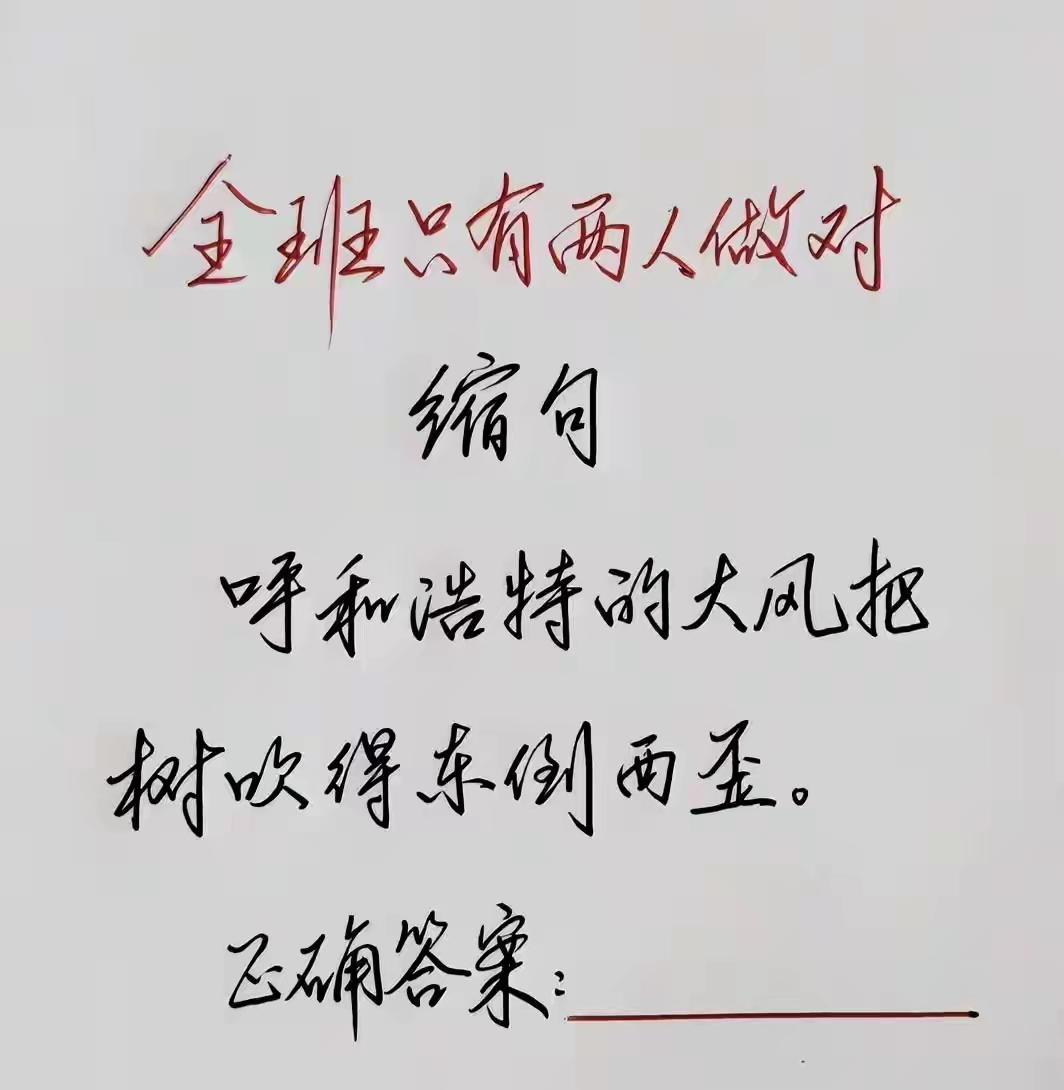 全班只有两人做对
缩句
呼和浩特的大风把
树吹得东倒西歪。
正确答案: